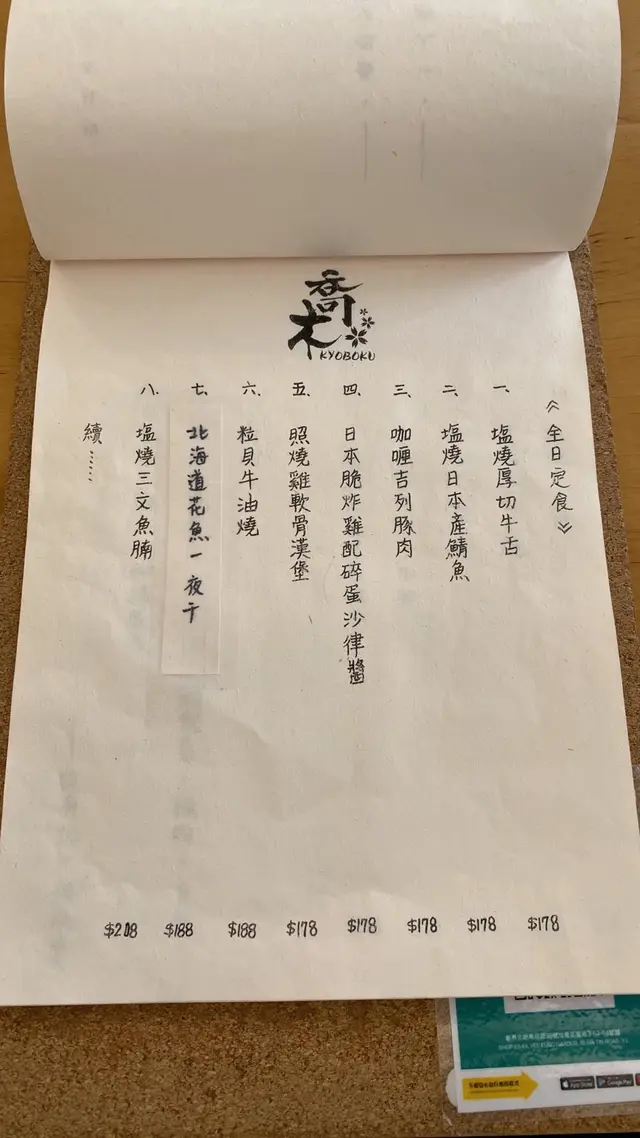 喬木
KYOBOKU
《全日定食》
一、塩燒厚切牛舌 $178
二、塩燒日本產鯖魚 $178
三、咖喱吉列豚肉 $178
四、日本脆炸雞配碎蛋沙律醬 $178
五、照燒雞軟骨漢堡 $178
六、粒貝牛油燒 $188
七、北海道花魚一夜干 $188
八、塩燒三文魚腩 $208
續……
App Store
Google Play